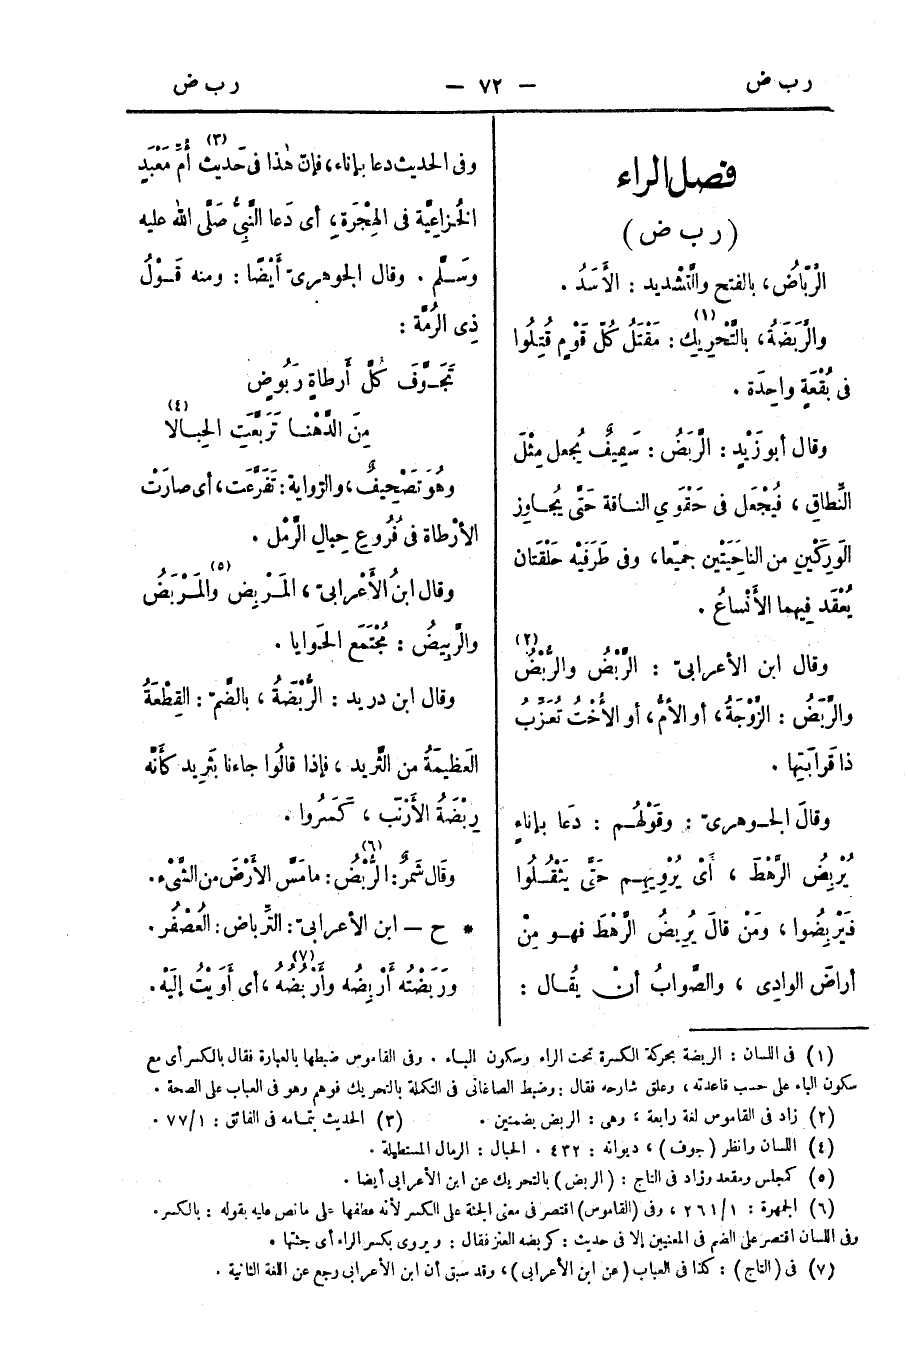 ر ب ض
— ٧٢ —
ر ب ض
فصل الراء
(ر ب ض)
الرَّبَّاضُ، بالفتح والتَّشْديد : الأَسَدُ .
والرَّبَضَةُ، بالتَّحْرِيكِ(١) : مَقْتَلُ كُلِّ قَوْمٍ قُتِلُوا
فى بُقْعَةٍ واحِدَة .
وقال أبو زَيْدٍ : الرَّبَضُ : سَفِيفٌ يُجعل مِثْلَ
النِّطاقِ ، فَيُجْعَل فى حَقْوَيِ الناقة حَتَّى يُجاوِز
الوَرِكَيْنِ من الناحِيَتَيْن جميعًا، وفى طَرَفَيْه حَلْقَتان
يُعْقَد فيهما الأَنْساعُ .
وقال ابن الأعرابىّ : الرَّبْضُ والرُّبْضُ(٢)
والرَّبَضُ : الزَّوْجَةُ، أو الأمُّ، أو الأُخْتُ تُعَزِّبُ
ذا قَرابَتِها .
وقالَ الجوهرىّ : وقَوْلُهُم : دَعا بإناءٍ
يُرْبِضُ الرَّهْطَ ، أَىْ يُرْوِيهِم حَتَّى يَثْقُلُوا
فَيَرْبِضُوا ، ومَنْ قالَ يُرِيضُ الرَّهْطَ فهو مِنْ
أراضَ الوادِى ، والصَّوابُ أنْ يُقال :
وفى الحديث دعا بإناء، فإنّ هٰذا فى حَديث(٣) أُمِّ مَعْبَدٍ
الخُزاعِيَّة فى الهِجْرَةِ، أى دَعا النَّبِىُّ صَلَّى اللهُ عليه
وسَلَّم . وقال الجوهرىّ أَيْضًا : ومنه قَوْلُ
ذِى الرُّمَّة :
تَجَوَّفَ كُلَّ أَرطاةٍ رَبُوضٍ
مِنَ الدَّهْنا تَرَبَّعَتِ الحِبالا(٤)
وهُوَ تَصْحِيفٌ، والرواية : تَفَرَّعَت، أى صارَتْ
الأرْطاة فى فُرُوعِ حِبالِ الرَّمْل .
وقال ابنُ الأَعْرابىّ ، المَرْبِض والمَرْبَضُ(٥)
والرَّبِيضُ : مُجْتَمَع الحَوايا .
وقال ابن دريد : الرُّبْضَةُ ، بالضَّمّ : القِطْعَةُ
العَظِيمَةُ من الثَّرِيد ، فإذا قالُوا جاءنا بثَرِيد كأنَّه
رِبْضَةُ الأَرْنَبِ ، كَسَرُوا .
وقَال شَمِرٌ : الرُّبْضُ(٦) : ما مَسَّ الأَرْضَ من الشَّىْء.
* ح — ابن الأعرابىّ: الترِّباض: العُصْفُر.
ورَبَضْتُه أَرْبِضُه وأَرْبُضُه(٧)، أى أَوَيْتُ إلَيْه.
(١) فى اللسان : الربضة بحركة الكسرة تحت الراء وسكون الباء . وفى القاموس ضبطها بالعبارة فقال بالكسر أى مع
سكون الباء على حسب قاعدته ، وعلق شارحه فقال : وضبط الصاغانى فى التكملة بالتحريك فوهم وهو فى العباب على الصحة .
(٢) زاد فى القاموس لغة رابعة ، وهى : الربض بضمتين . (٣) الحديث بتمامه فى الفائق : ٧٧/١ .
(٤) اللسان وانظر (جوف) ، ديوانه : ٤٣٢ . الحبال : الرمال المستطيلة .
(٥) كمجلس ومقعد وزاد فى التاج : (الربض) بالتحريك عن ابن الأعرابى أيضا .
(٦) الجمهرة : ٢٦١/١ ، وفى (القاموس) اقتصر فى معنى الجثة على الكسر لأنه عطفها على ما نص عليه بقوله : بالكسر.
وفى اللسان اقتصر على الضم فى المعنيين إلا فى حديث : كربضه العنز فقال : ويروى بكسر الراء أى جثتها .
(٧) فى (التاج) : كذا فى العباب (عن ابن الأعرابى)، وقد سبق أن ابن الأعرابى رجع عن اللغة الثانية .